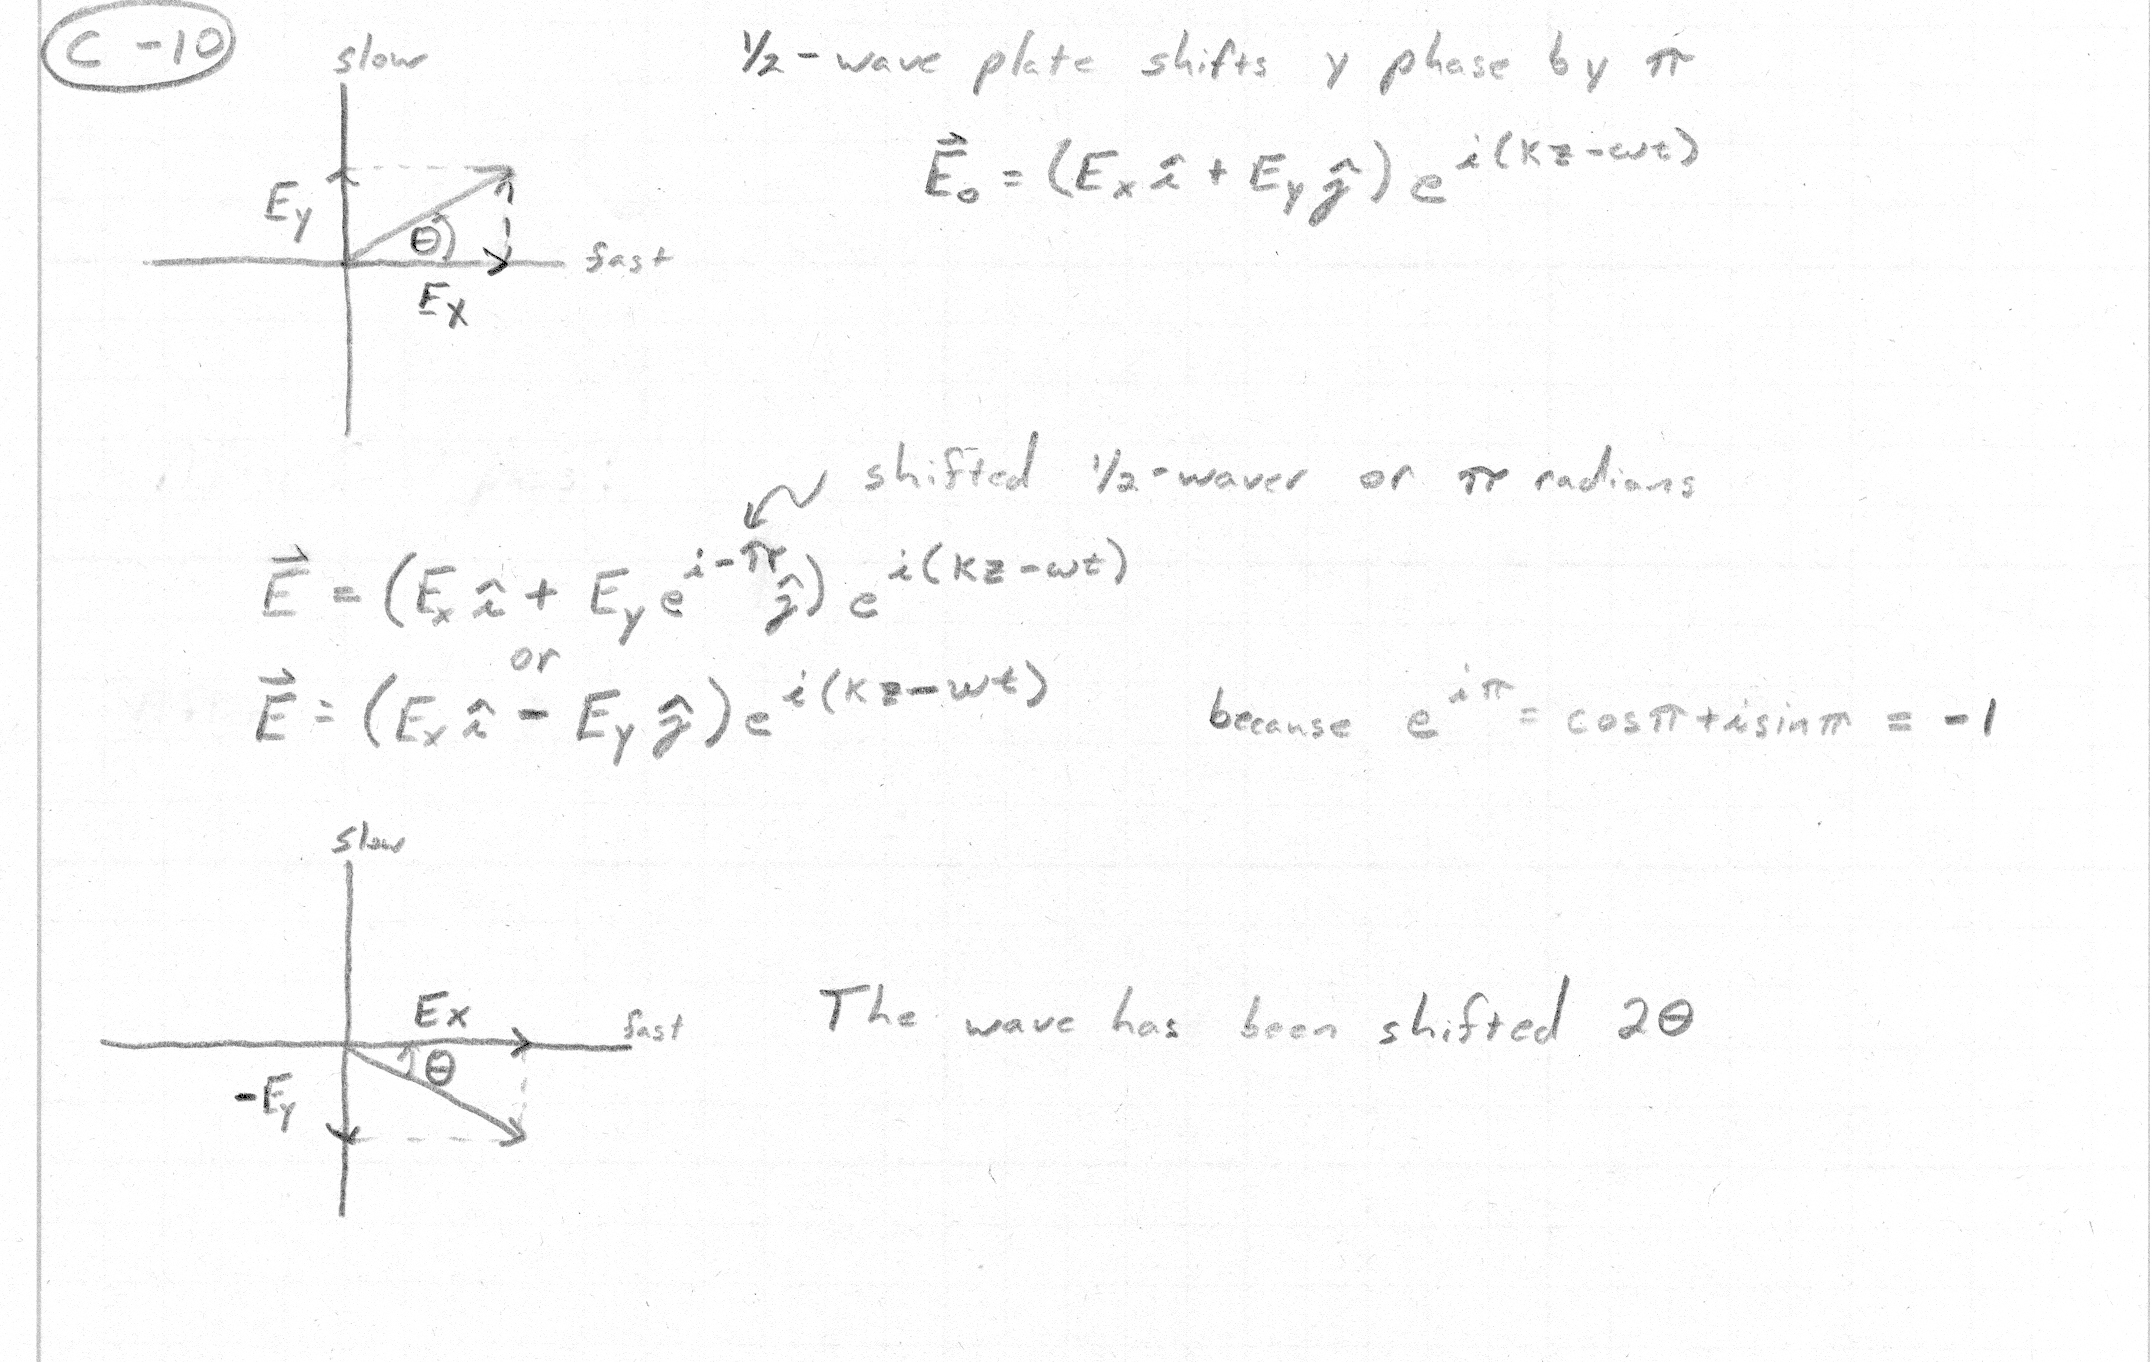 C-10
slow
½-wave plate shifts y phase by π
E⃗₀ = (Eₓ î + E_y ĵ) e^{i(kz-ωt)}
E_y
θ
fast
Eₓ
shifted ½-waver or π radians
E⃗ = (Eₓ î + E_y e^{i-π} ĵ) e^{i(kz-ωt)}
or
E⃗ = (Eₓ î - E_y ĵ) e^{i(kz-ωt)} because e^{iπ} = cosπ + i sinπ = -1
slow
Eₓ
fast
The wave has been shifted 2θ
θ
-E_y